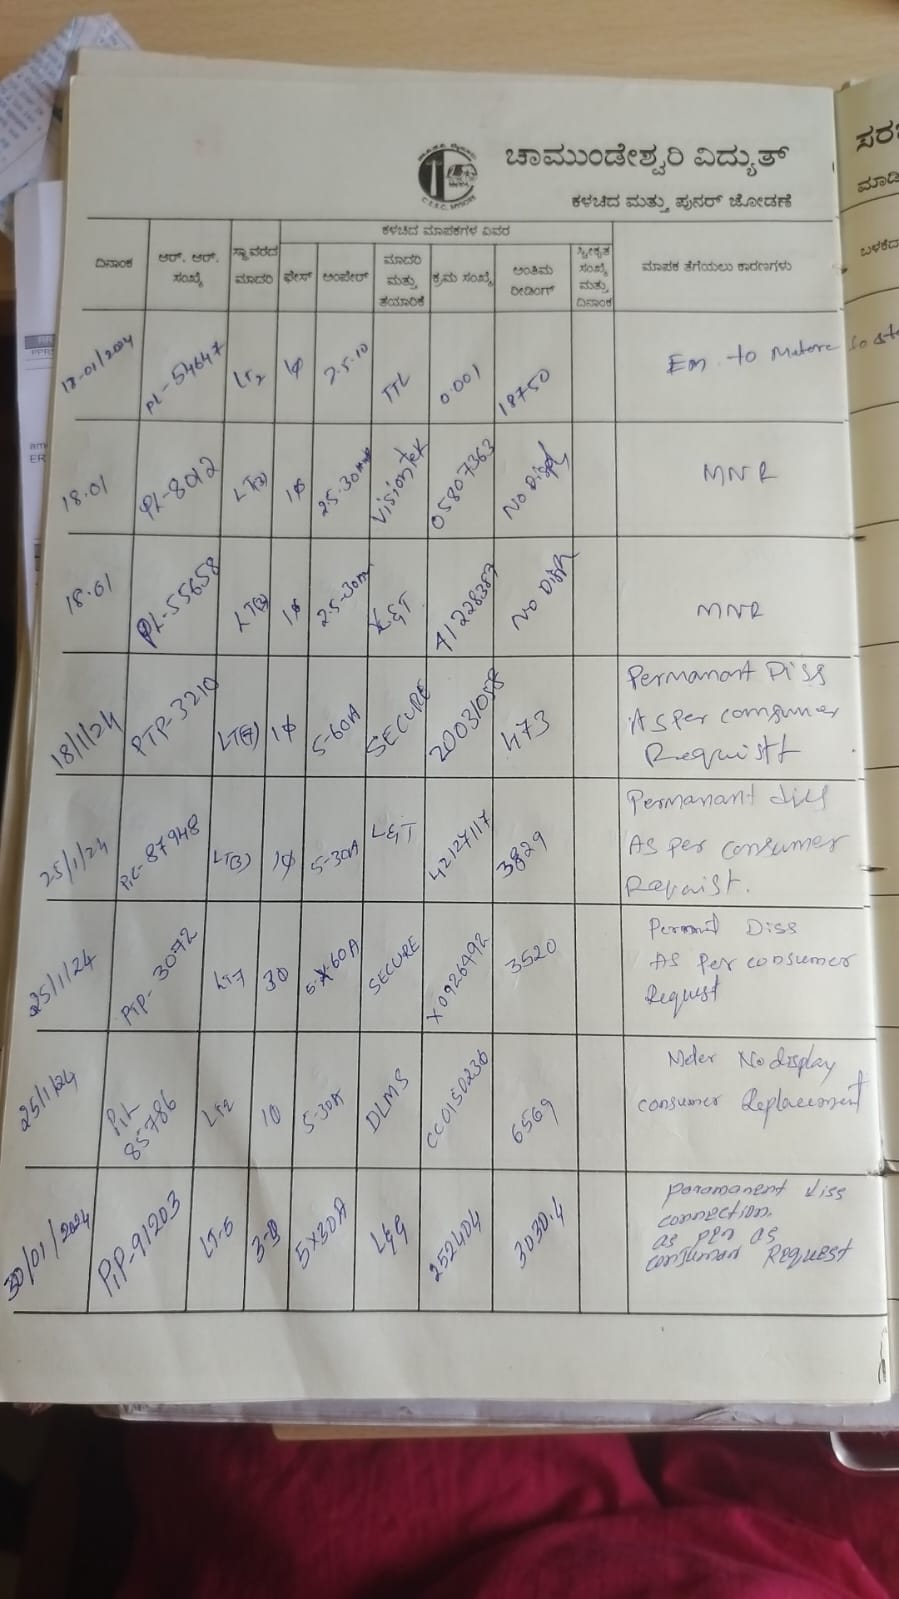 ಚಾಮುಂಡೇಶ್ವರಿ ವಿದ್ಯುತ್
ಕಳಚಿದ ಮತ್ತು ಪುನರ್ ಜೋಡಣೆ
ಕಳಚಿದ ಮಾಪಕಗಳ ವಿವರ
ದಿನಾಂಕ ಆರ್. ಆರ್. ಸಂಖ್ಯೆ ಸ್ಥಾವರದ ಮಾದರಿ ಫೇಸ್ ಅಂಪೇರ್ ಮಾದರಿ ಮತ್ತು ತಯಾರಿಕೆ ಕ್ರಮ ಸಂಖ್ಯೆ ಅಂತಿಮ ರೀಡಿಂಗ್ ಸ್ವೀಕೃತ ಸಂಖ್ಯೆ ಮತ್ತು ದಿನಾಂಕ ಮಾಪಕ ತೆಗೆಯಲು ಕಾರಣಗಳು
18-01/2024 PL-54647 LT2 1φ 2.5-10 TTL 0.001 18750 Em. to
18.01 PL-8012 LT(3) 1φ 2.5-30 Visiontek 05807363 No MNR
18.01 PL-55658 LT(3) 1φ 2.5-30 L&T 71228387 No MNR
18/1/24 PTP-3210 1φ 5-60A SECURE 20031058 473 Permanant Diss
As per consumer
Requistt
25/1/24 87948 LT(3) 1φ 5-30A L&T 42127117 3829 Permanant diss
As per consumer
Requist.
25/1/24 PTP-3072 LT7 30 60A SECURE X0926492 3520 Diss
As per consumer
Request
25/1/24 85786 LT2 10 5-30A DLMS CC0150236 6569 No display
consumer Replacement
30/01/2024 PIP-91203 LT-5 5×30A 252404 3030.4 paramanent diss
connection.
as per as
consumar Request